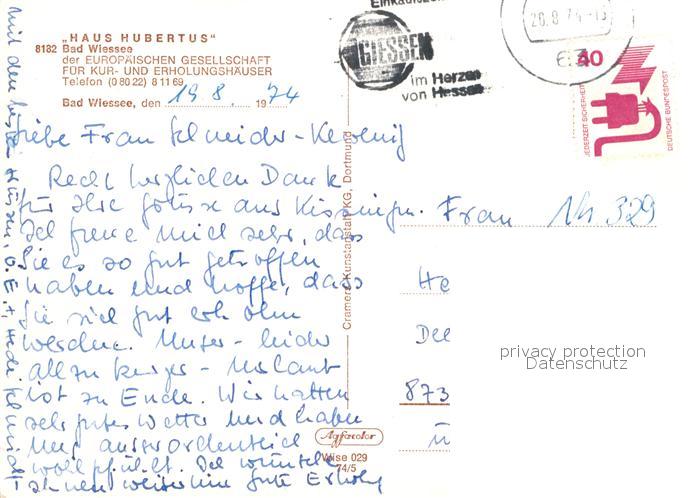 „HAUS HUBERTUS"
8182 Bad Wiessee
der EUROPÄISCHEN GESELLSCHAFT
FÜR KUR- UND ERHOLUNGSHÄUSER
Telefon (0 80 22) 8 11 69
Bad Wiessee, den 19 8. 1974
Liebe Frau Schneider-
Recht herzlichen Dank
für Ihre Grüsse aus Kissingen.
Ich freue mich sehr, dass
Sie es so gut getroffen
haben und hoffe, dass
Sie sich gut erholen
werden. Unser - leider
allzu kurzer - Urlaub
ist zu Ende. Wir hatten
sehr gutes Wetter und haben
uns ausserordentlich
wohlgefühlt. Ich wünsche
Ihnen weiterhin gute Erholg
Mit den besten Grüssen,
Cramers Kunstanstalt KG, Dortmund
Agfacolor
Wise 029
74/5
GIESSEN
im Herzen
von Hessen
20.8.74-15
63
40
JEDERZEIT SICHERHEIT
DEUTSCHE BUNDESPOST
Frau Nr 329
He
873
privacy protection
Datenschutz